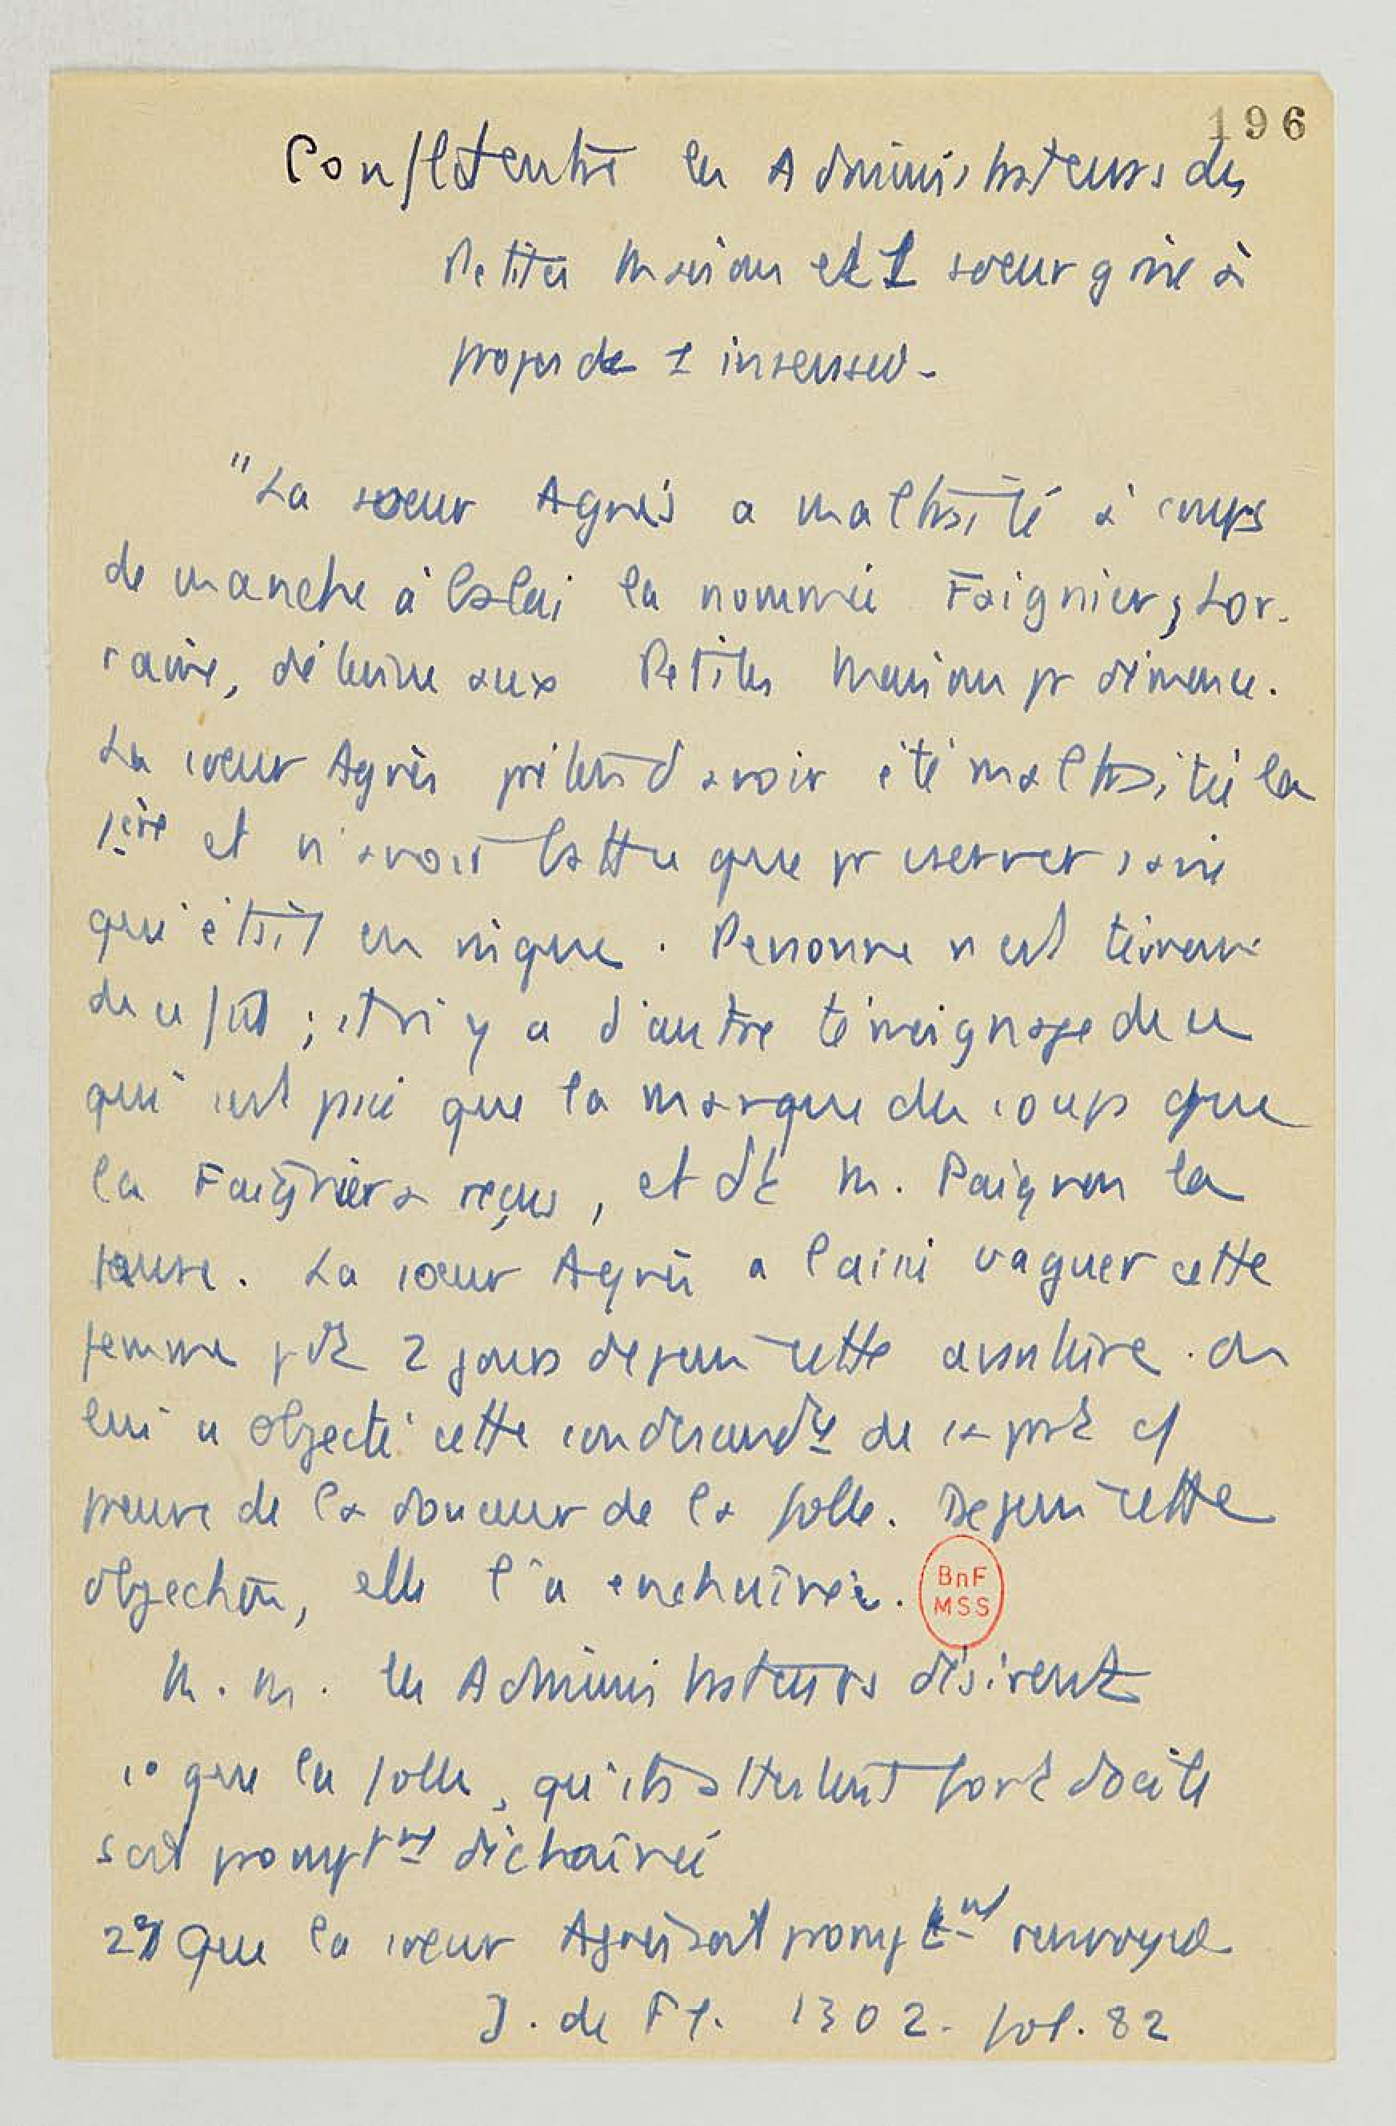 196
Conflit entre les Administrateurs des
Petites Maisons et 1 soeur grise à
propos de 1 insensée.
"La soeur Agnès a maltraité à coups
de manche à balai la nommée Faignier, Lor-
raine, détenue aux Petites Maisons pr démence.
La soeur Agnès prétend avoir été maltraitée la
1ère et n'avoir battu que pr conserver sa vie
qui était en risque. Personne n'est témoin
de ce fait ; et n'y a d'autre témoignage de ce
qui s'est passé que la marque des coups que
la Faignier a reçus, et dt M. Paignon la
pansée. La soeur Agnès a laissé vaguer cette
femme pdt 2 jours depuis cette aventure. On
lui a objecté cette condescendce de sa part cf
preuve de la douceur de la folle. Depuis cette
objection, elle l'a enchaînée.
BnF
MSS
M. M. les Administrateurs désirent
1° que la folle, qu'ils attestent fort docile
soit promptnt déchaînée
2° Que la soeur Agnès soit promptnt renvoyée
J. de Fl. 1302. fol. 82